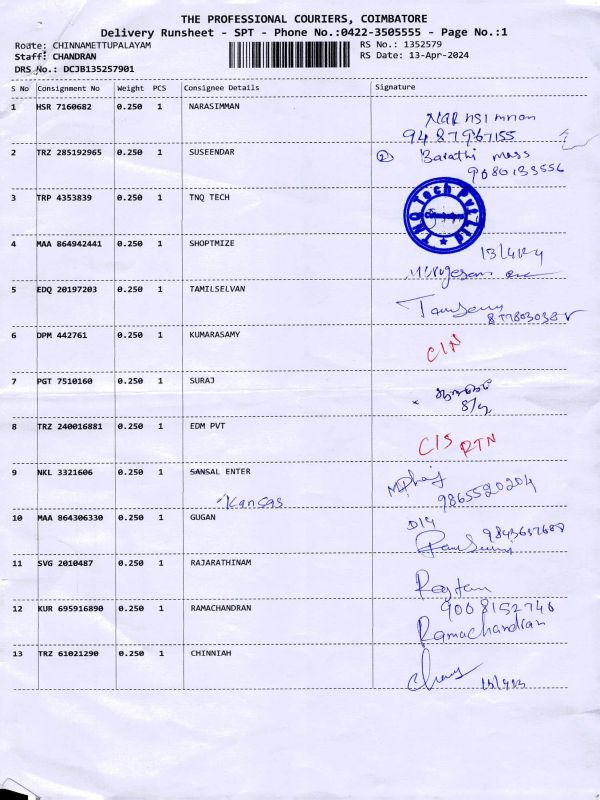 THE PROFESSIONAL COURIERS, COIMBATORE
Delivery Runsheet - SPT - Phone No.:0422-3505555 - Page No.:1
Route: CHINNAMETTUPALAYAM RS No.: 1352579
Staff: CHANDRAN RS Date: 13-Apr-2024
DRS No.: DCJB135257901
S No Consignment No Weight PCS Consignee Details Signature
1 HSR 7160682 0.250 1 NARASIMMAN
9487967155
2 TRZ 285192965 0.250 1 SUSEENDAR ② Barathi mass
9080133556
3 TRP 4353839 0.250 1 TNQ TECH TNQ Tech Pvt Ltd
4 MAA 864942441 0.250 1 SHOPTMIZE 13/4/24
5 EDQ 20197203 0.250 1 TAMILSELVAN
6 DPM 442761 0.250 1 KUMARASAMY CIN
7 PGT 7510160 0.250 1 SURAJ
8 TRZ 240016881 0.250 1 EDM PVT C/S RTN
9 NKL 3321606 0.250 1 SANSAL ENTER
Kansas 9865520204
10 MAA 864306330 0.250 1 GUGAN
11 SVG 2010487 0.250 1 RAJARATHINAM
12 KUR 695916890 0.250 1 RAMACHANDRAN 9008152746
Ramachandran
13 TRZ 61021290 0.250 1 CHINNIAH